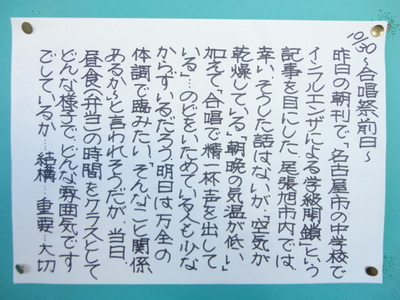 10/30 〜合唱祭前日〜
昨日の朝刊で「名古屋市の中学校で
インフルエンザによる学級閉鎖」という
記事を目にした。尾張旭市内では、
幸い、そうした話はないが、「空気が
乾燥している」「朝晩の気温が低い」
加えて「合唱で精一杯声を出して
いる」…のどをいためている人も少な
からずいるだろう。明日は万全の
体調で臨みたい。そんなこと関係
あるか?と言われそうだが、当日、
昼食(弁当)の時間をクラスとして
どんな様子で、どんな雰囲気です
ごしているか…結構…重要…大切